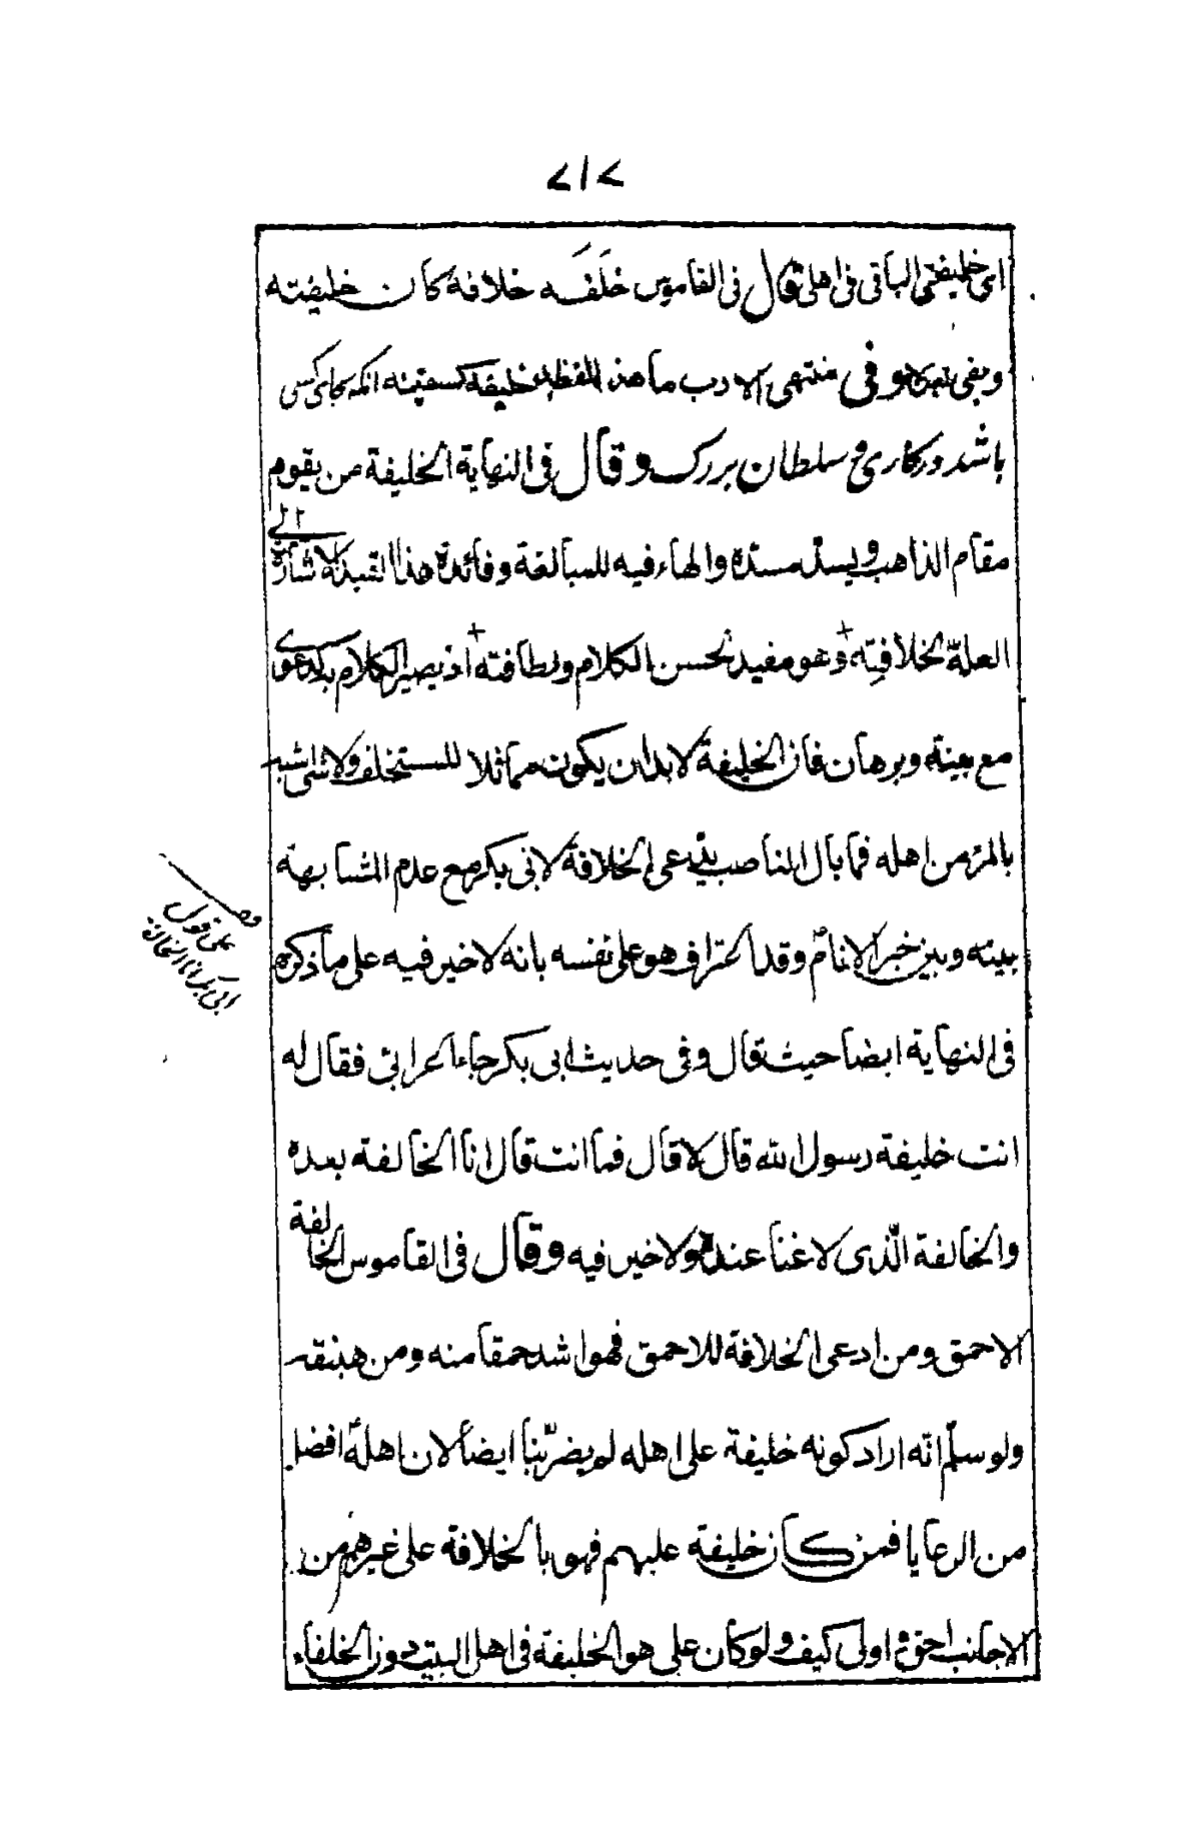 ۷۱۷
اى خليفتى الباقى فى اهلى قال فى القاموس خَلَفَه خلافة كان خليفته
وبقى بعده وفى منتهى الادب ما هذا لفظه خليفة كسفينه انكه بجاى كسى
باشد در كارى و سلطان بزرك وقال فى النهاية الخليفة من يقوم
مقام الذاهب ويسدّ مسدّه والهاء فيه للمبالغة وفائدة هذا القيد الاشارة الى
العلة الخلافيّة وهو مفيد لحسن الكلام ولطافته اذ يصير الكلام به كدعوى
مع بينة وبرهان فان الخليفة لابد ان يكون مماثلا للمستخلف ولا شى اشبه
بالمرء من اهله فما بال الناصب يدّعى الخلافة لابى بكر مع عدم المشابهة
بينه وبين خير الانامؐ وقد اعترف هو على نفسه بانه لا خير فيه على ما ذكره
فى النهاية ايضا حيث قال وفى حديث ابى بكر جاء اعرابىّ فقال له
انت خليفة رسول الله قال لا قال فما انت قال انا الخالفة بعده
والخالفة الّذى لا غنا عنده ولا خير فيه وقال فى القاموس الخالفة
الاحمق ومن ادعى الخلافة للاحمق فهو اشد حمقا منه ومن هبنقه
ولو سلّم انّه اراد كونه خليفة على اهله لم يضرّنا ايضا لان اهلهؑ افضل
من الرعايا فمن كان خليفة عليهم فهو بالخلافة على غيرهم من
الاجانب احقّ و اولى كيف ولو كان على هو الخليفة فى اهل البيت دون الخلفاء
على قول
ابى بكر انا الخالفة